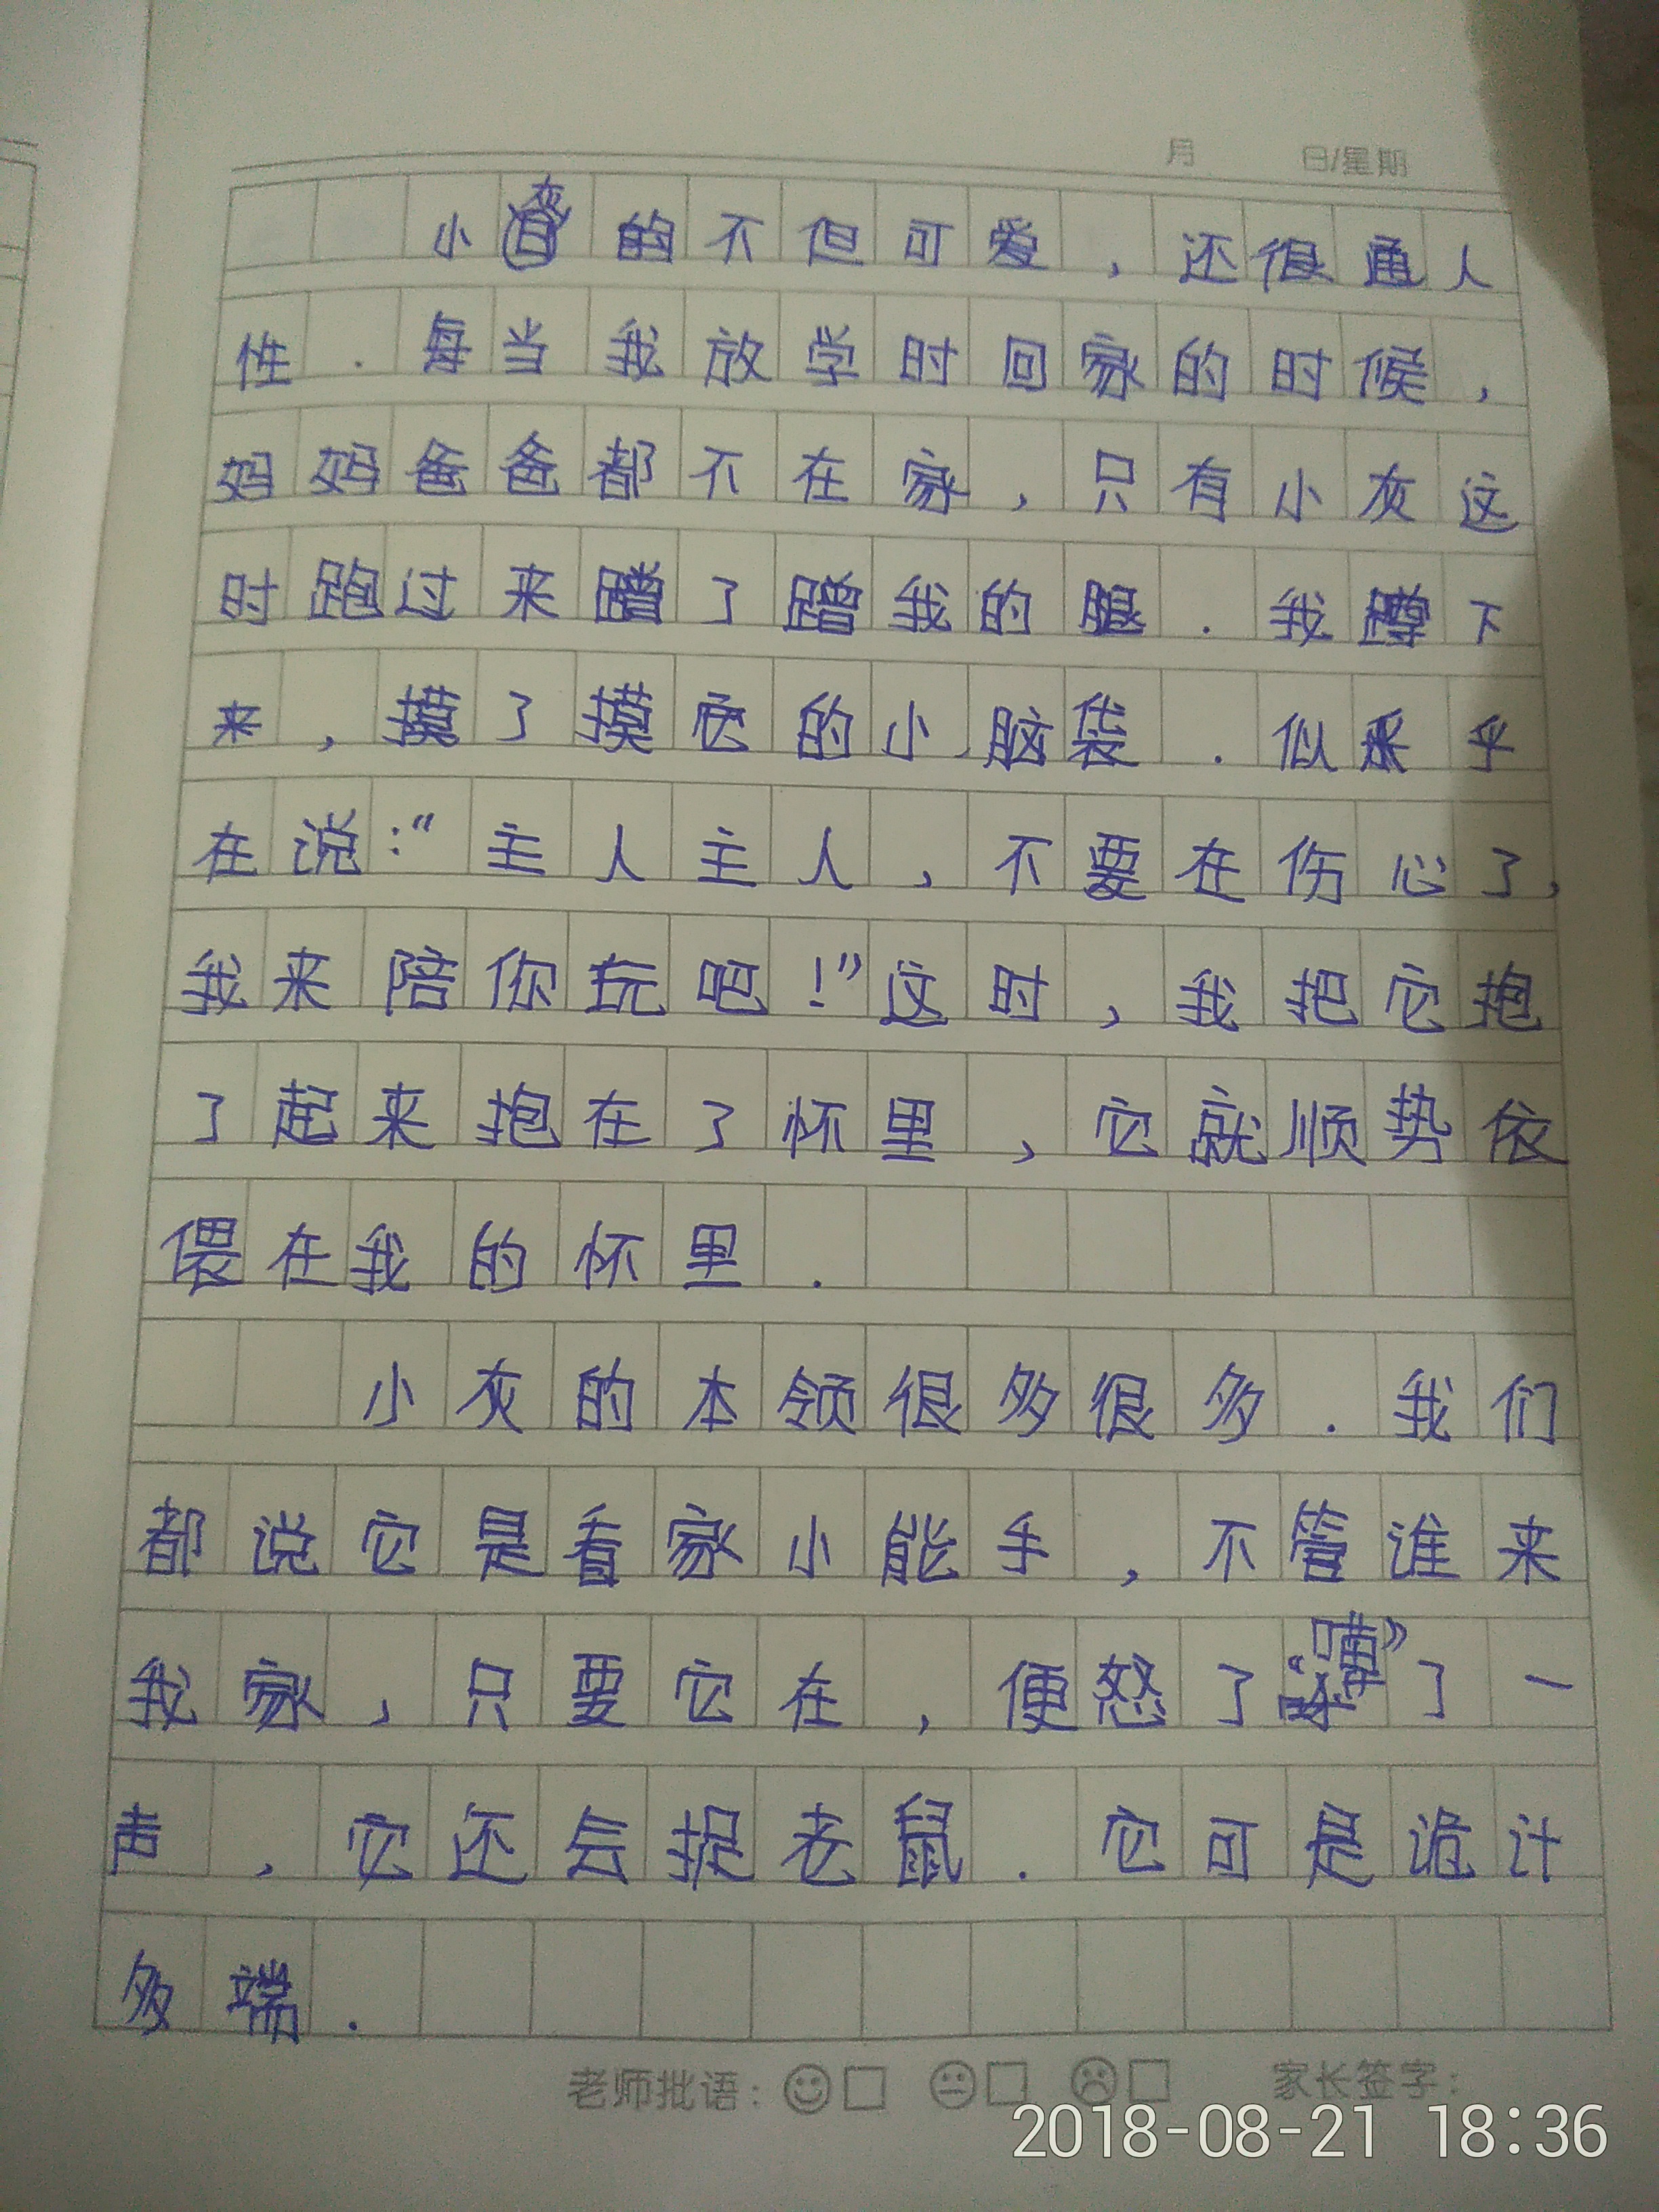 月 日/星期
小灰的不但可爱，还很通人
性．每当我放学时回家的时候，
妈妈爸爸都不在家，只有小灰这
时跑过来蹭了蹭我的腿．我蹲下
来，摸了摸它的小脑袋．似乎
在说：“主人主人，不要在伤心了，
我来陪你玩吧！”这时，我把它抱
了起来抱在了怀里，它就顺势依
偎在我的怀里．
小灰的本领很多很多．我们
都说它是看家小能手，不管谁来
我家，只要它在，便怒了“”了一
声，它还会捉老鼠．它可是诡计
多端．
老师批语：☺□ 😐□ ☹□ 家长签字：
2018-08-21 18:36